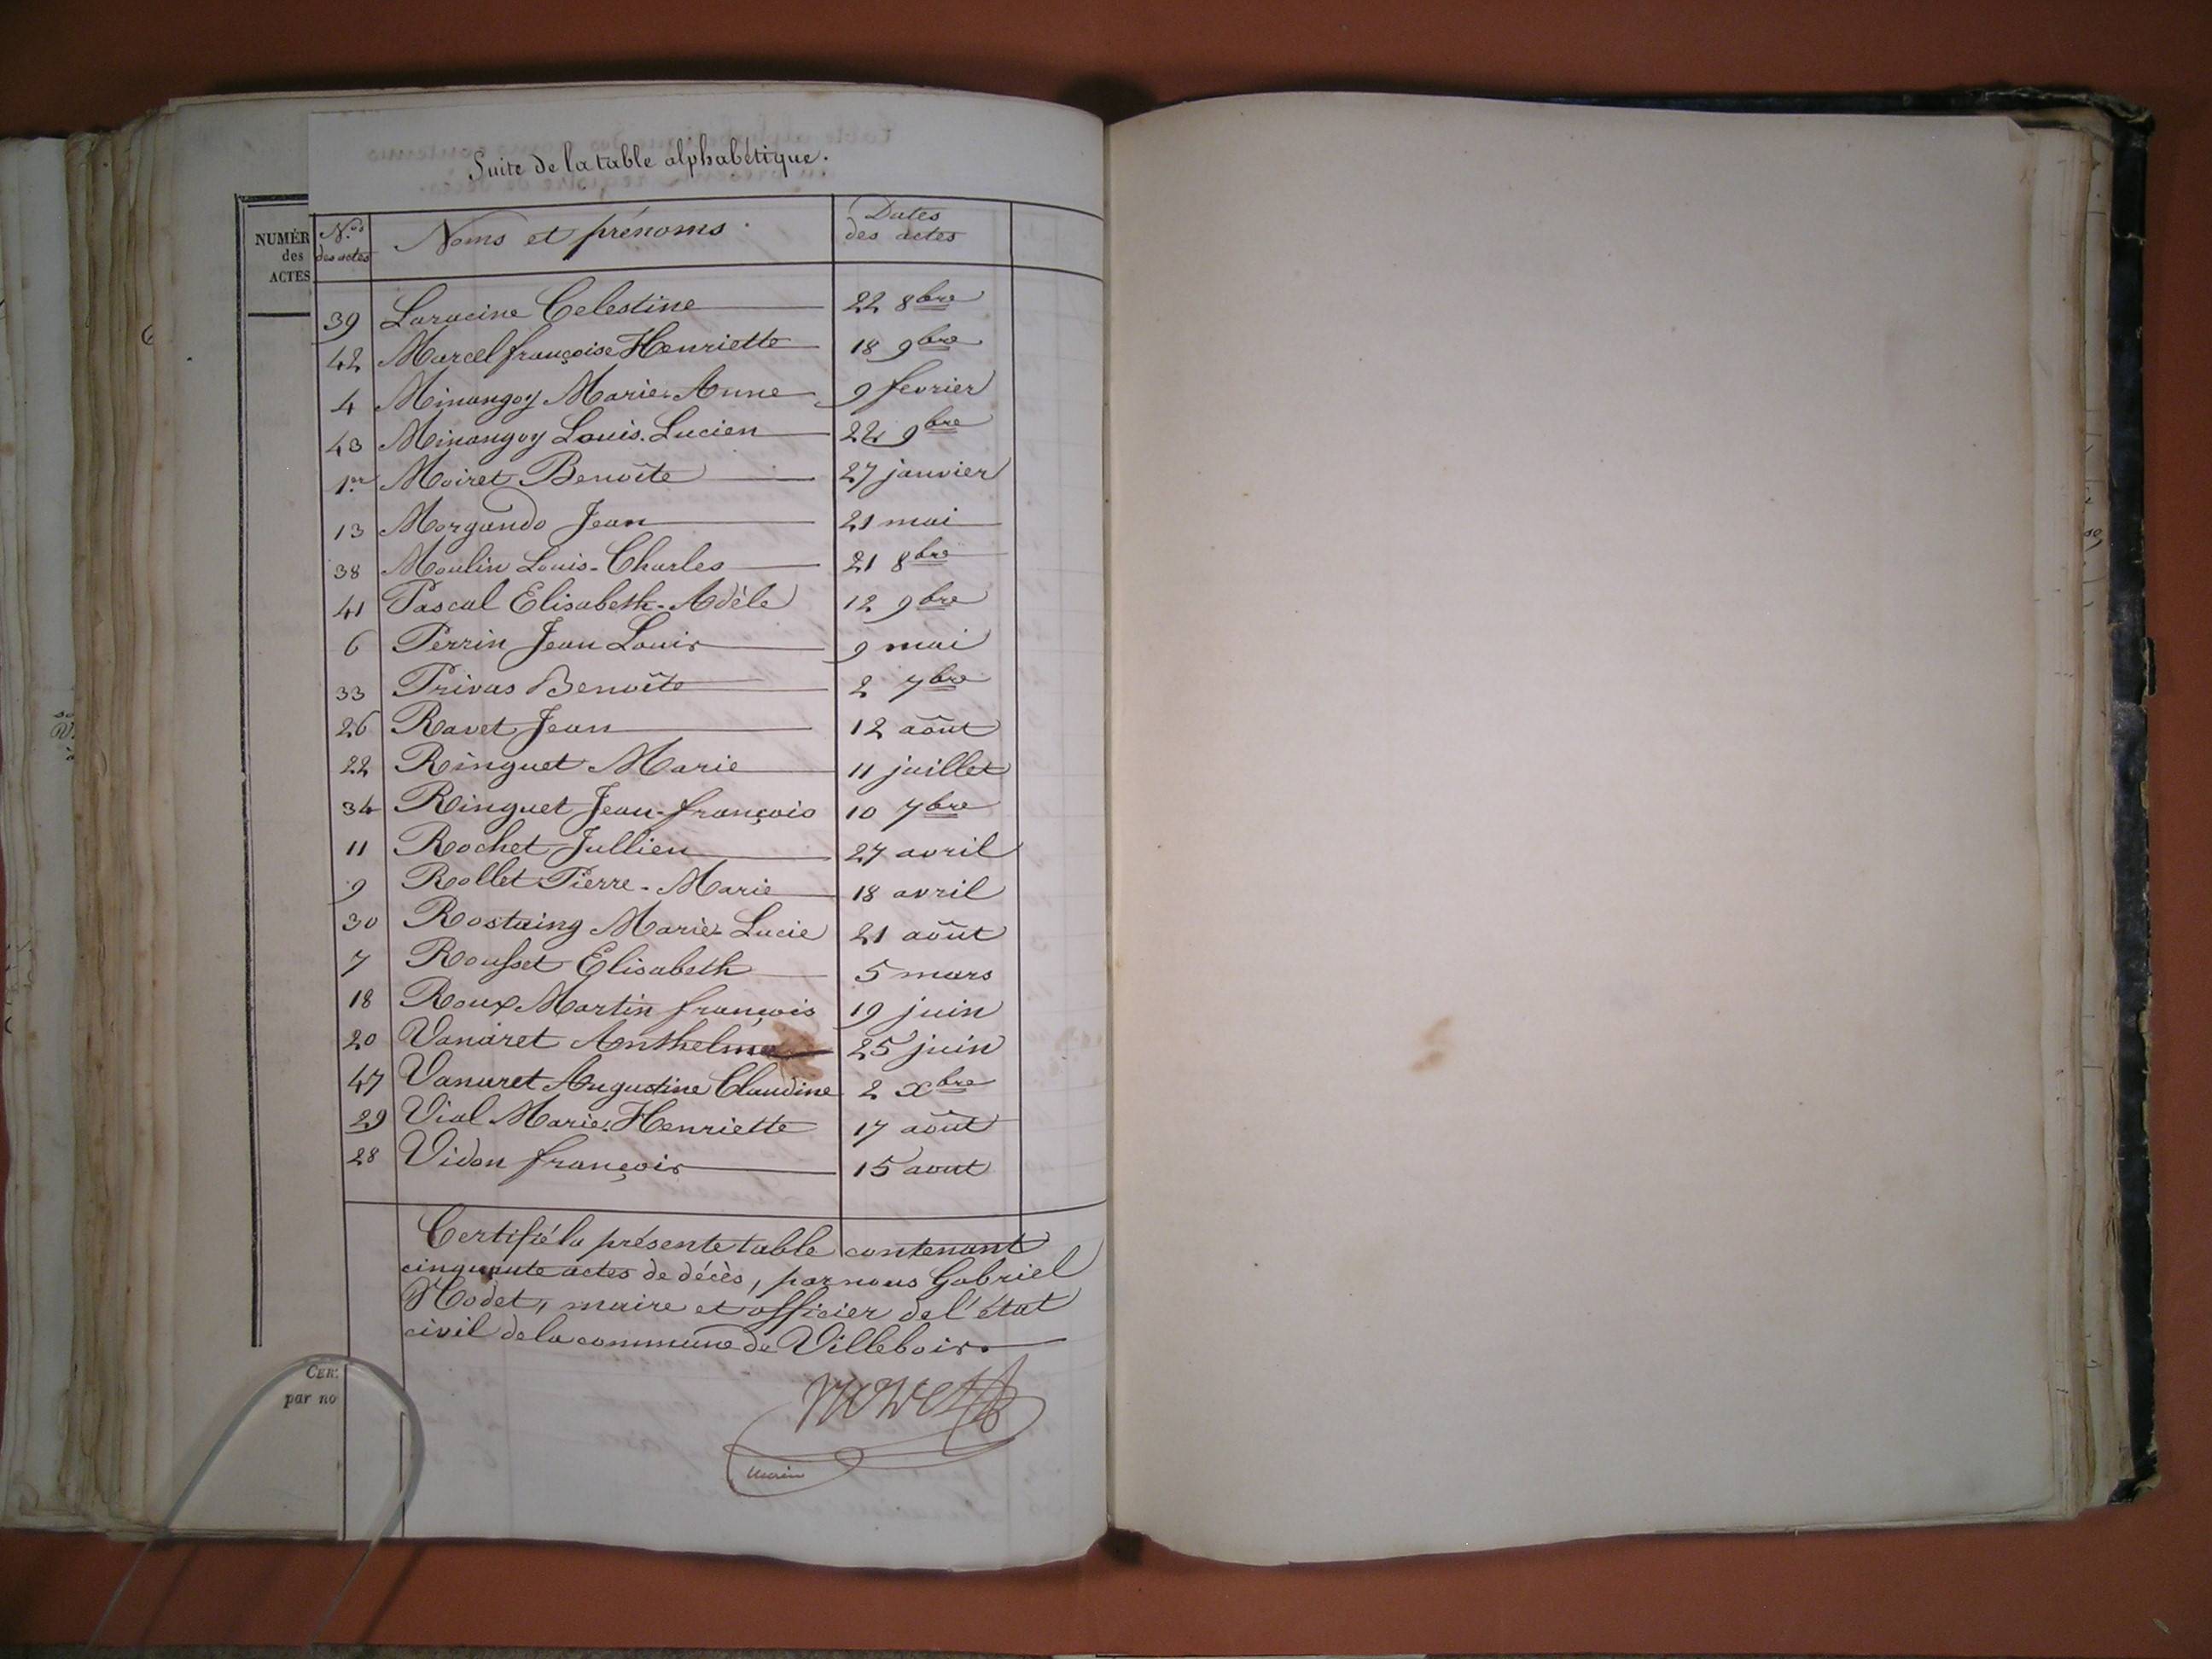 Suite de la table alphabétique.
NUMÉR
des
ACTES
N.os des actes
Noms et prénoms.
Dates des actes
39 Laracine Celestine 22 8bre
42 Marcel françoise Henriette 18 9bre
4 Minangoy Marie-Anne 9 fevrier
43 Minangoy Louis-Lucien 22 9bre
1er Moiret Benoîte 27 janvier
13 Morgando Jean 21 mai
38 Moulin Louis-Charles 21 8bre
41 Pascal Elisabeth-Adèle 12 9bre
6 Perrin Jean Louis 9 mai
33 Privas Benoîte 2 7bre
26 Ravet Jean 12 août
22 Ringuet Marie 11 juillet
34 Ringuet Jean-françois 10 7bre
11 Rochet Jullien 27 avril
9 Rollet Pierre-Marie 18 avril
30 Rostaing Marie-Lucie 21 août
7 Rousset Elisabeth 5 mars
18 Roux Martin françois 19 juin
20 Vanaret Anthelme 25 juin
47 Vanaret Augustine Claudine 2 Xbre
29 Vial Marie-Henriette 17 août
28 Vidon françois 15 aout
Certifié la présente table contenant
cinquante actes de décès, par nous Gabriel
Hodet, maire et officier de l'état
civil de la commune de Villebois.
CER
par no